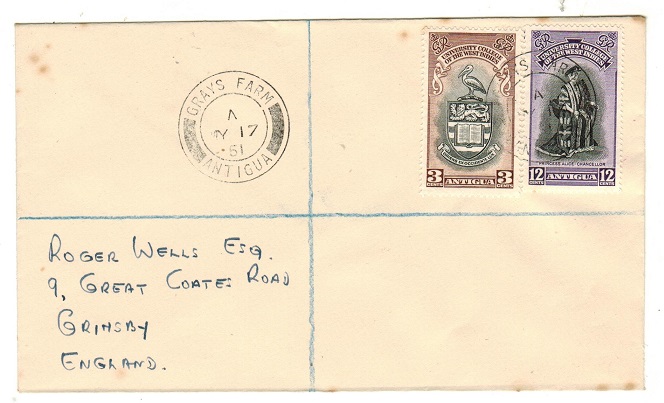 GRAYS FARM
A
MY 17
51
ANTIGUA
GR
UNIVERSITY COLLEGE
OF THE WEST INDIES
3 CENTS
ANTIGUA
3 CENTS
GR
UNIVERSITY COLLEGE
OF THE WEST INDIES
PRINCESS ALICE: CHANCELLOR
12 CENTS
ANTIGUA
12 CENTS
ROGER WELLS ESQ.
9, GREAT COATES ROAD
GRIMSBY
ENGLAND.